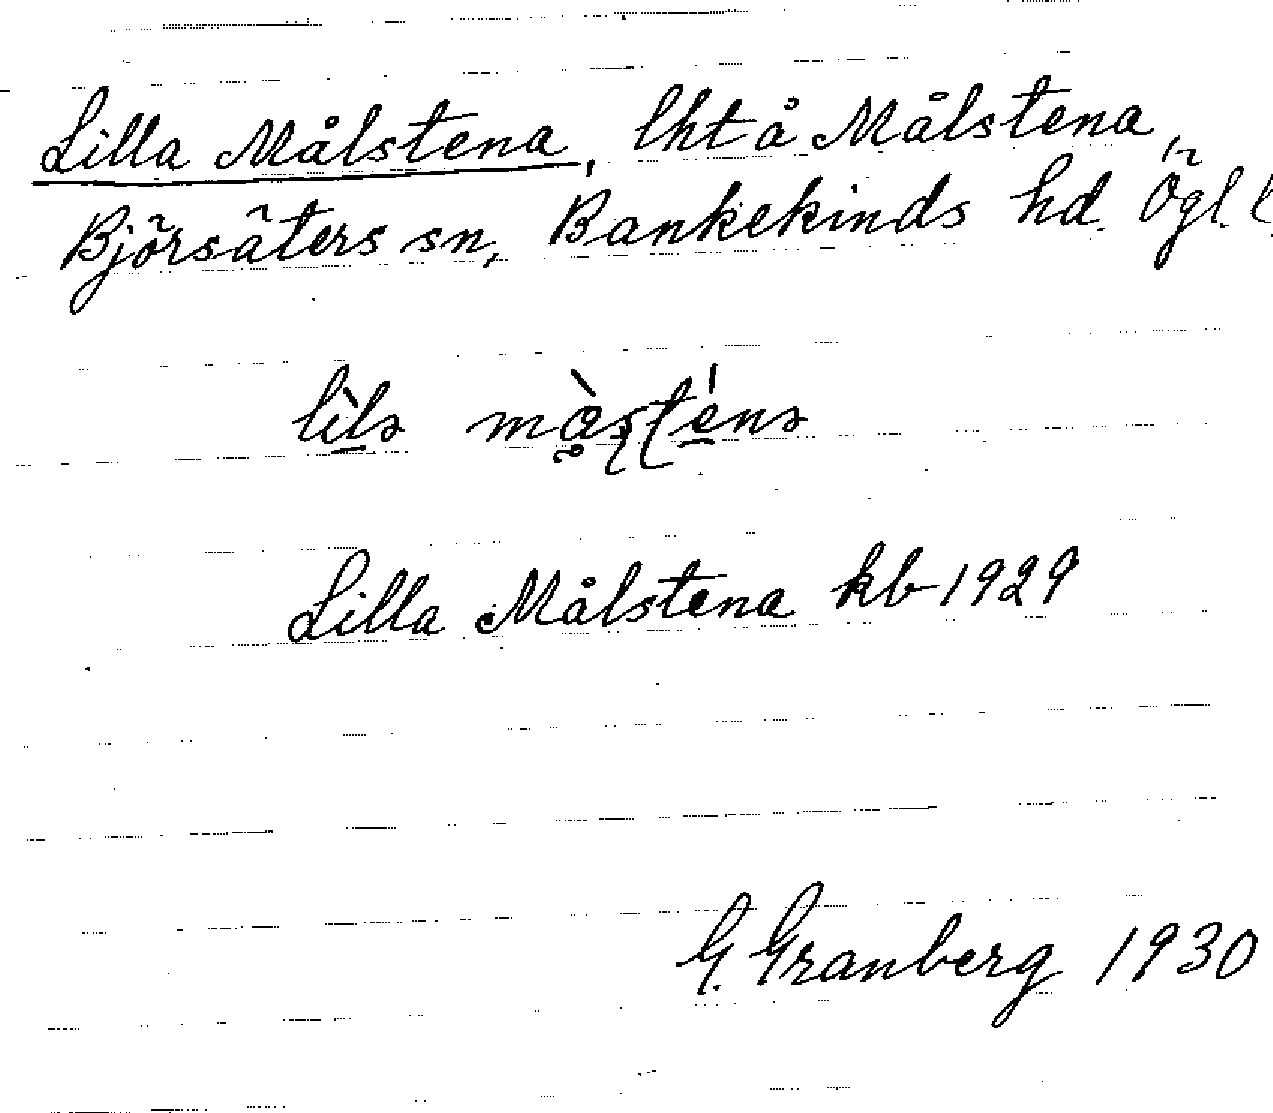 Lilla Målstena, lht å Målstena,
Björsäters sn, Bankekinds hd. Ögl. l
Lilla Målstena kb 1929
G. Granberg 1930